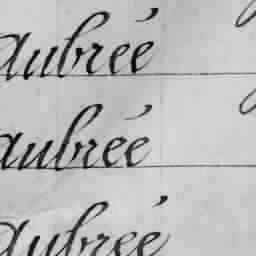 Aubrée
Aubrée
Aubrée